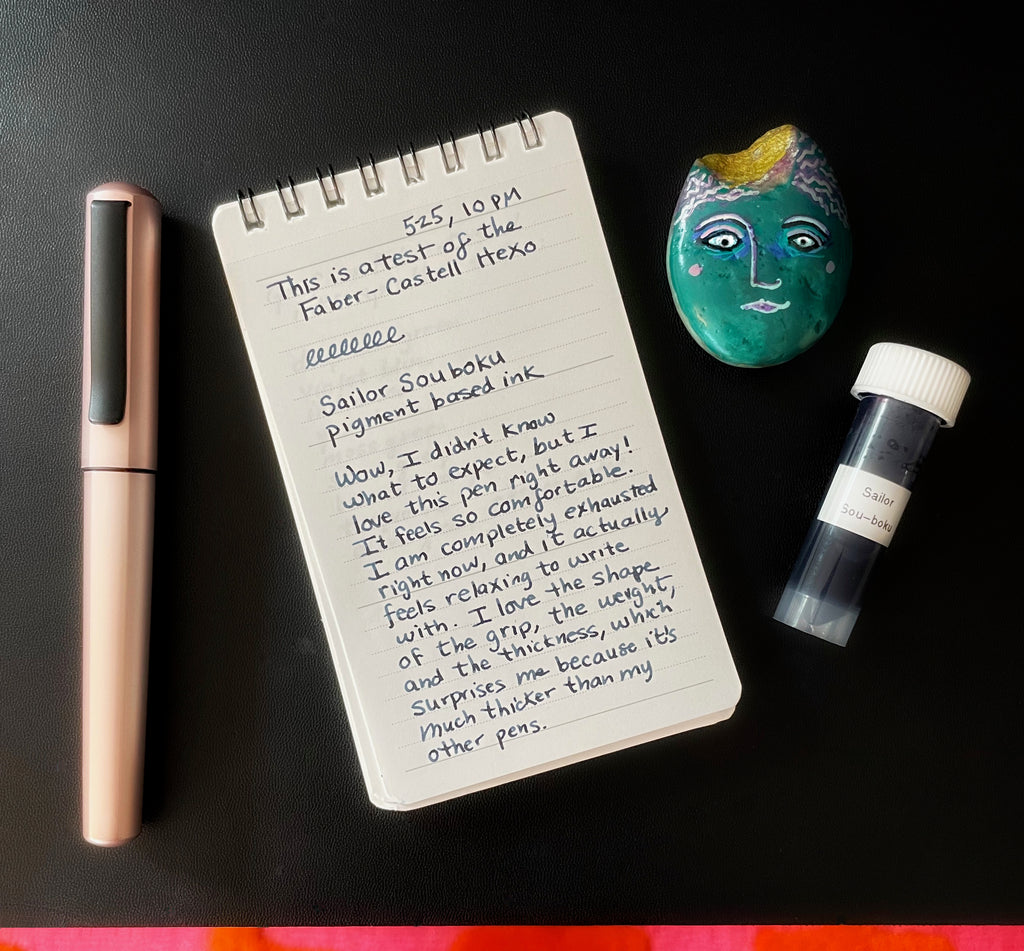 525, 10 PM
This is a test of the
Faber-Castell Hexo
eeeeeeee
Sailor Souboku
pigment based ink
Wow, I didn't know
what to expect, but I
love this pen right away!
It feels so comfortable.
I am completely exhausted
right now, and it actually
feels relaxing to write
with. I love the shape
of the grip, the weight,
and the thickness, which
surprises me because it's
much thicker than my
other pens.
Sailor
Sou-boku